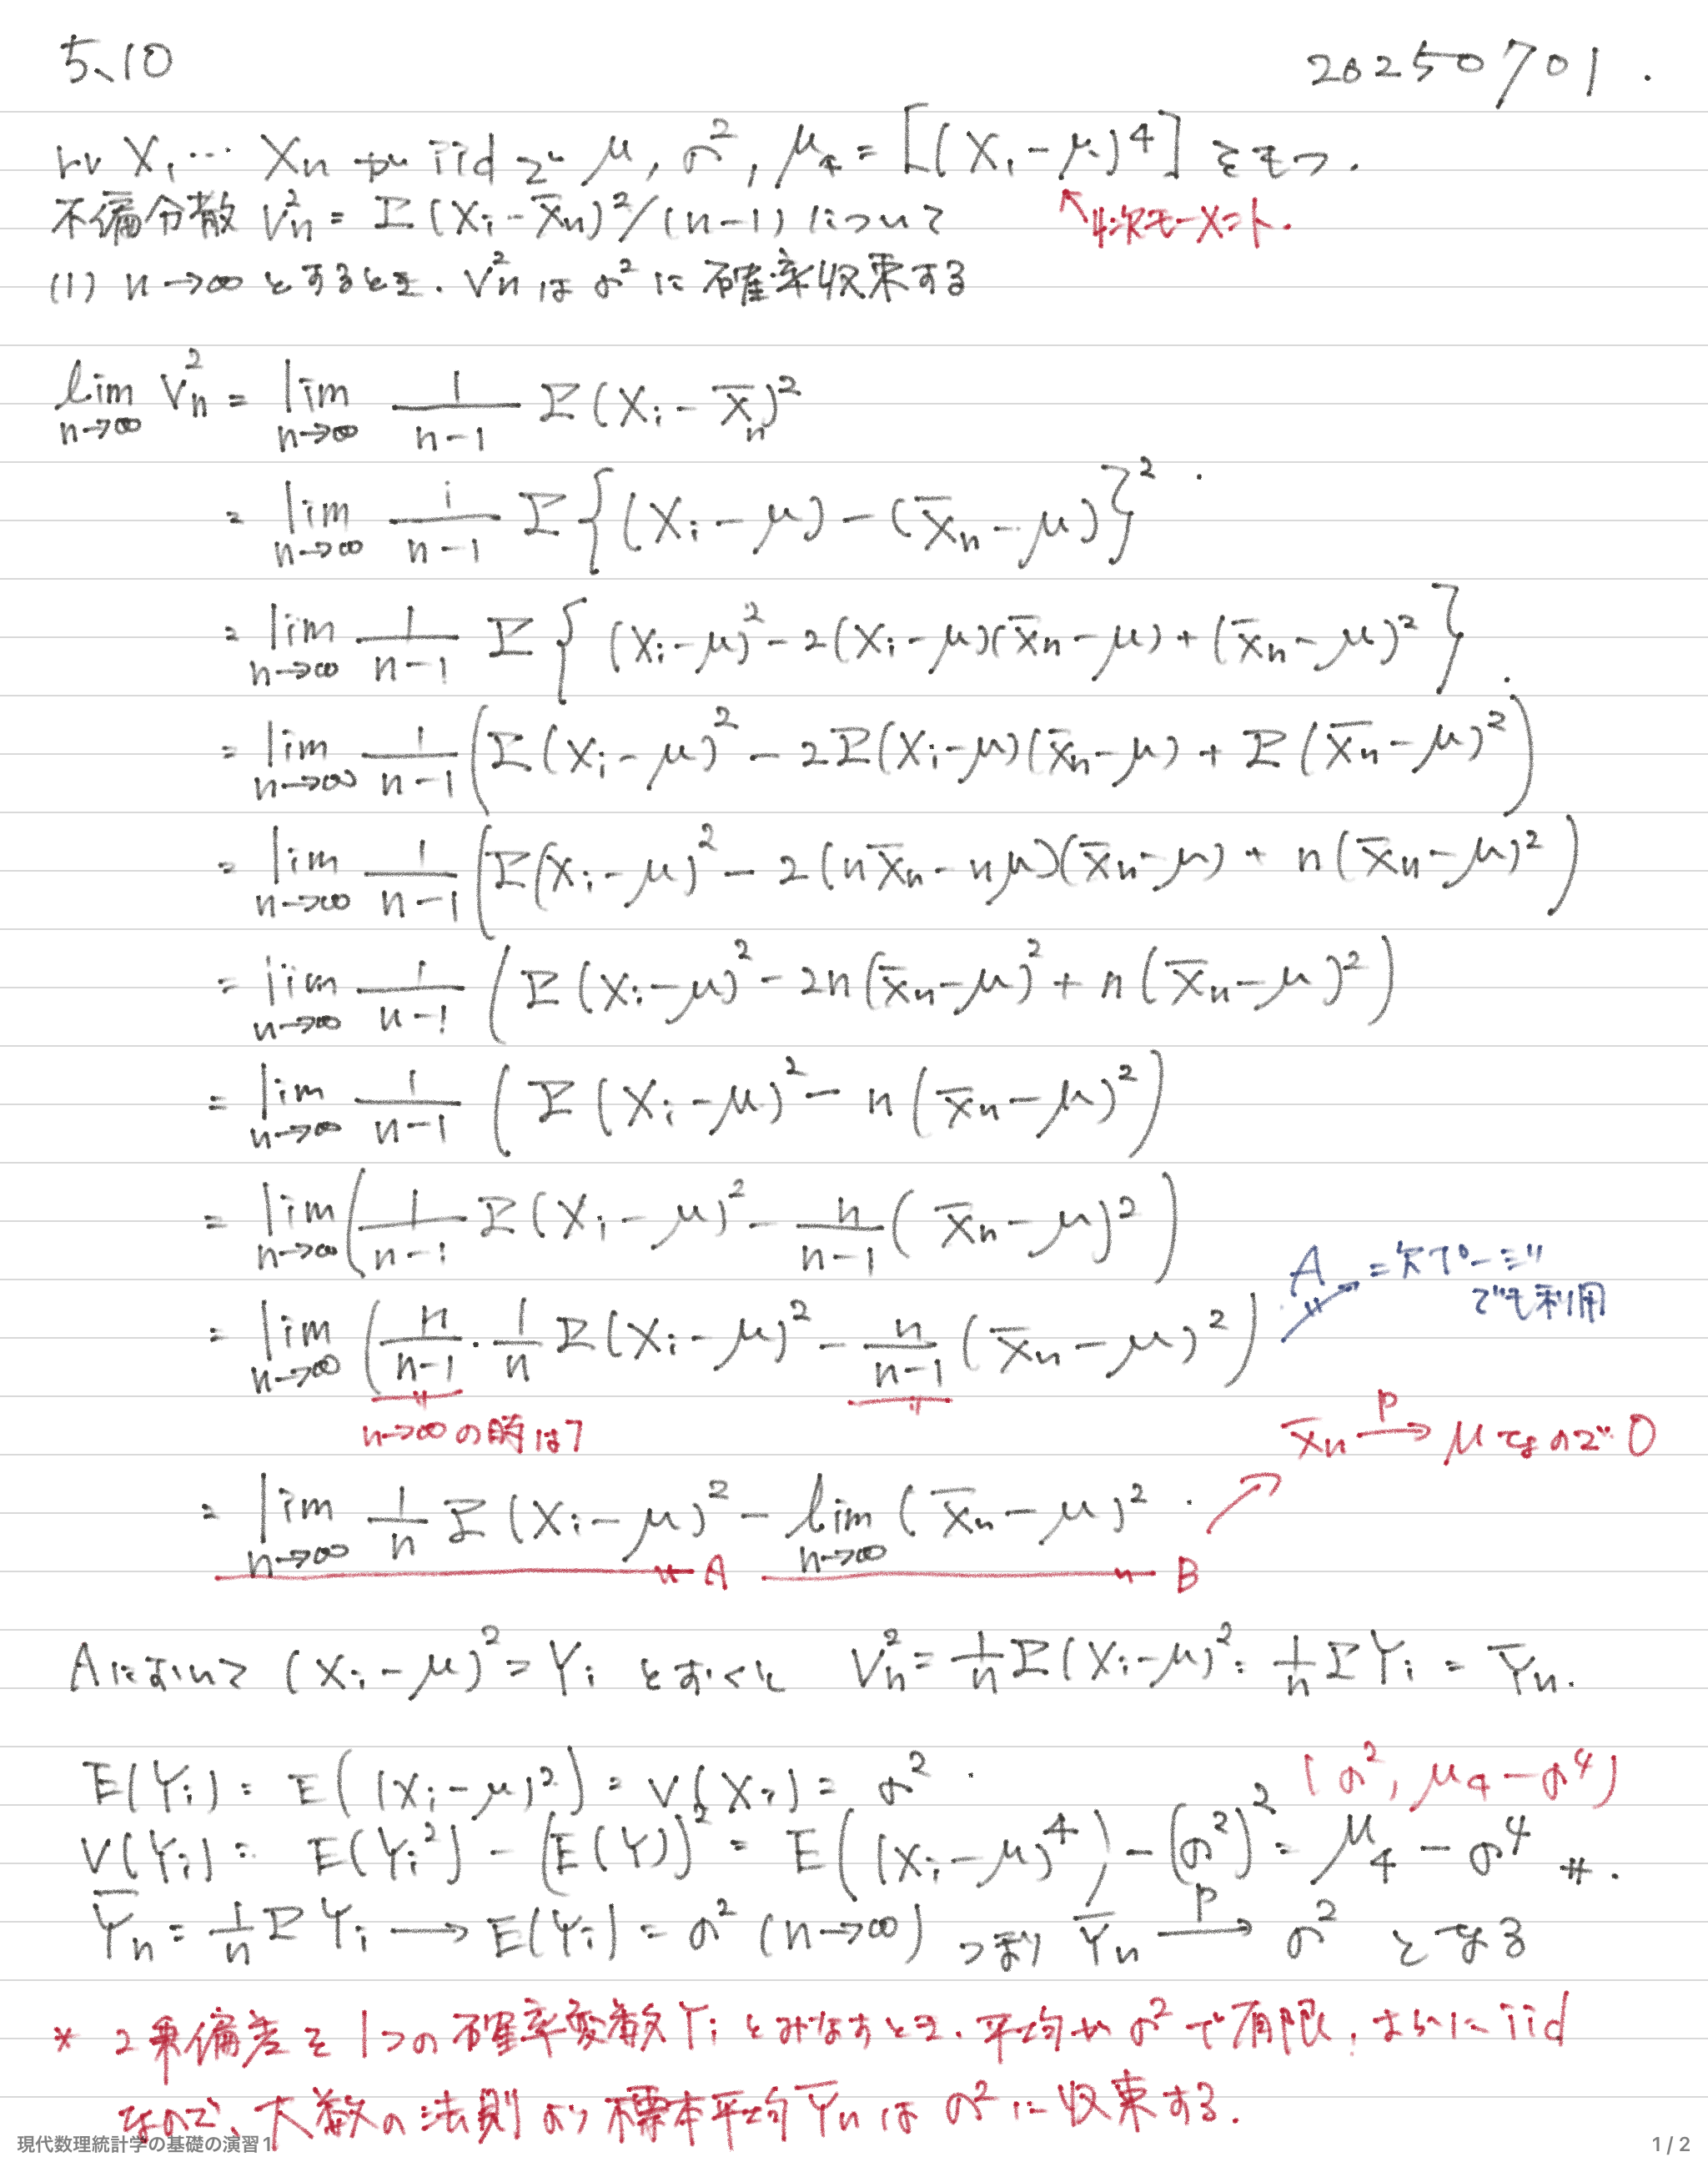 5.10 20250701.
rv X₁…Xn が iid で μ, σ², μ₄ = [(X₁-μ)⁴] をもつ.
不偏分散 Vn² = Σ(Xi-X̄n)²/(n-1) について
↖4次モーメント.
(1) n→∞ とするとき. Vn² は σ² に 確率収束する
lim n→∞ Vn² = lim n→∞ 1/(n-1) Σ(Xi-X̄n)²
= lim n→∞ 1/(n-1) Σ{(Xi-μ)-(X̄n-μ)}²
= lim n→∞ 1/(n-1) Σ{(Xi-μ)²-2(Xi-μ)(X̄n-μ)+(X̄n-μ)²}
= lim n→∞ 1/(n-1) (Σ(Xi-μ)²-2Σ(Xi-μ)(X̄n-μ)+Σ(X̄n-μ)²)
= lim n→∞ 1/(n-1) (Σ(Xi-μ)²-2(nX̄n-nμ)(X̄n-μ)+n(X̄n-μ)²)
= lim n→∞ 1/(n-1) (Σ(Xi-μ)²-2n(X̄n-μ)²+n(X̄n-μ)²)
= lim n→∞ 1/(n-1) (Σ(Xi-μ)²-n(X̄n-μ)²)
= lim n→∞ (1/(n-1) Σ(Xi-μ)²-n/(n-1) (X̄n-μ)²)
A = 次ページ
でも利用
= lim n→∞ (n/(n-1)・1/n Σ(Xi-μ)²-n/(n-1) (X̄n-μ)²)
n→∞の時は1 〃
X̄n →ᴾ μ なので 0
= lim n→∞ 1/n Σ(Xi-μ)² - lim n→∞ (X̄n-μ)²
A B
Aにおいて (Xi-μ)²=Yi とおくと Vn² = 1/n Σ(Xi-μ)² = 1/n ΣYi = Ȳn.
(σ², μ₄-σ⁴)
E(Yi) = E((Xi-μ)²) = V(Xi) = σ².
V(Yi) = E(Yi²)-(E(Y))² = E((Xi-μ)⁴)-(σ²)² = μ₄-σ⁴ #.
Ȳn = 1/n ΣYi → E(Yi) = σ² (n→∞) つまり Ȳn →ᴾ σ² となる
* 2乗偏差を1つの確率変数Yiとみなすとき. 平均が σ² で有限, さらに iid
なので、大数の法則より標本平均Ȳnは σ² に収束する.
現代数理統計学の基礎の演習1 1 / 2